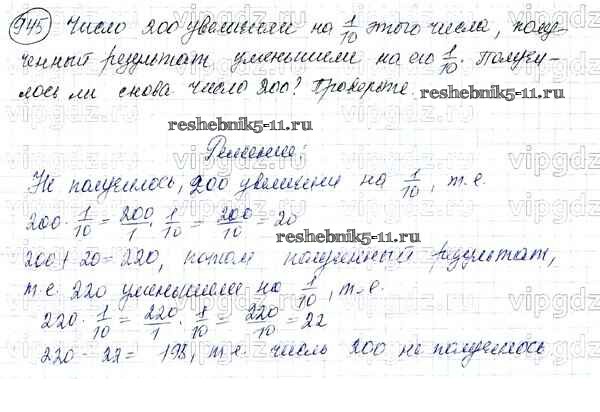 945 Число 200 увеличили на 1/10 этого числа, полу-
ченный результат уменьшили на его 1/10. Получи-
лось ли снова число 200? Проверьте.
reshebnik5-11.ru
Решение:
Не получилось, 200 увеличили на 1/10, т.е.
200 · 1/10 = 200/1 · 1/10 = 200/10 = 20
reshebnik5-11.ru
200 + 20 = 220, потом полученный результат,
т.е. 220 уменьшили на 1/10, т.е.
220 · 1/10 = 220/1 · 1/10 = 220/10 = 22
220 - 22 = 198, т.е. число 200 не получилось